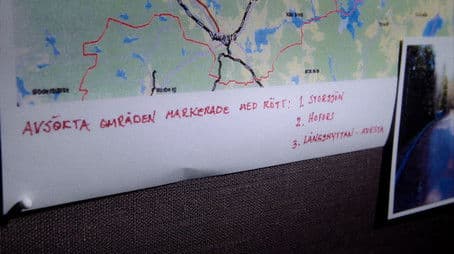 AVSÖKTA OMRÅDEN MARKERADE MED RÖTT: 1. STORSJÖN
2. HOFORS
3. LÅNGSHYTTAN - AVESTA